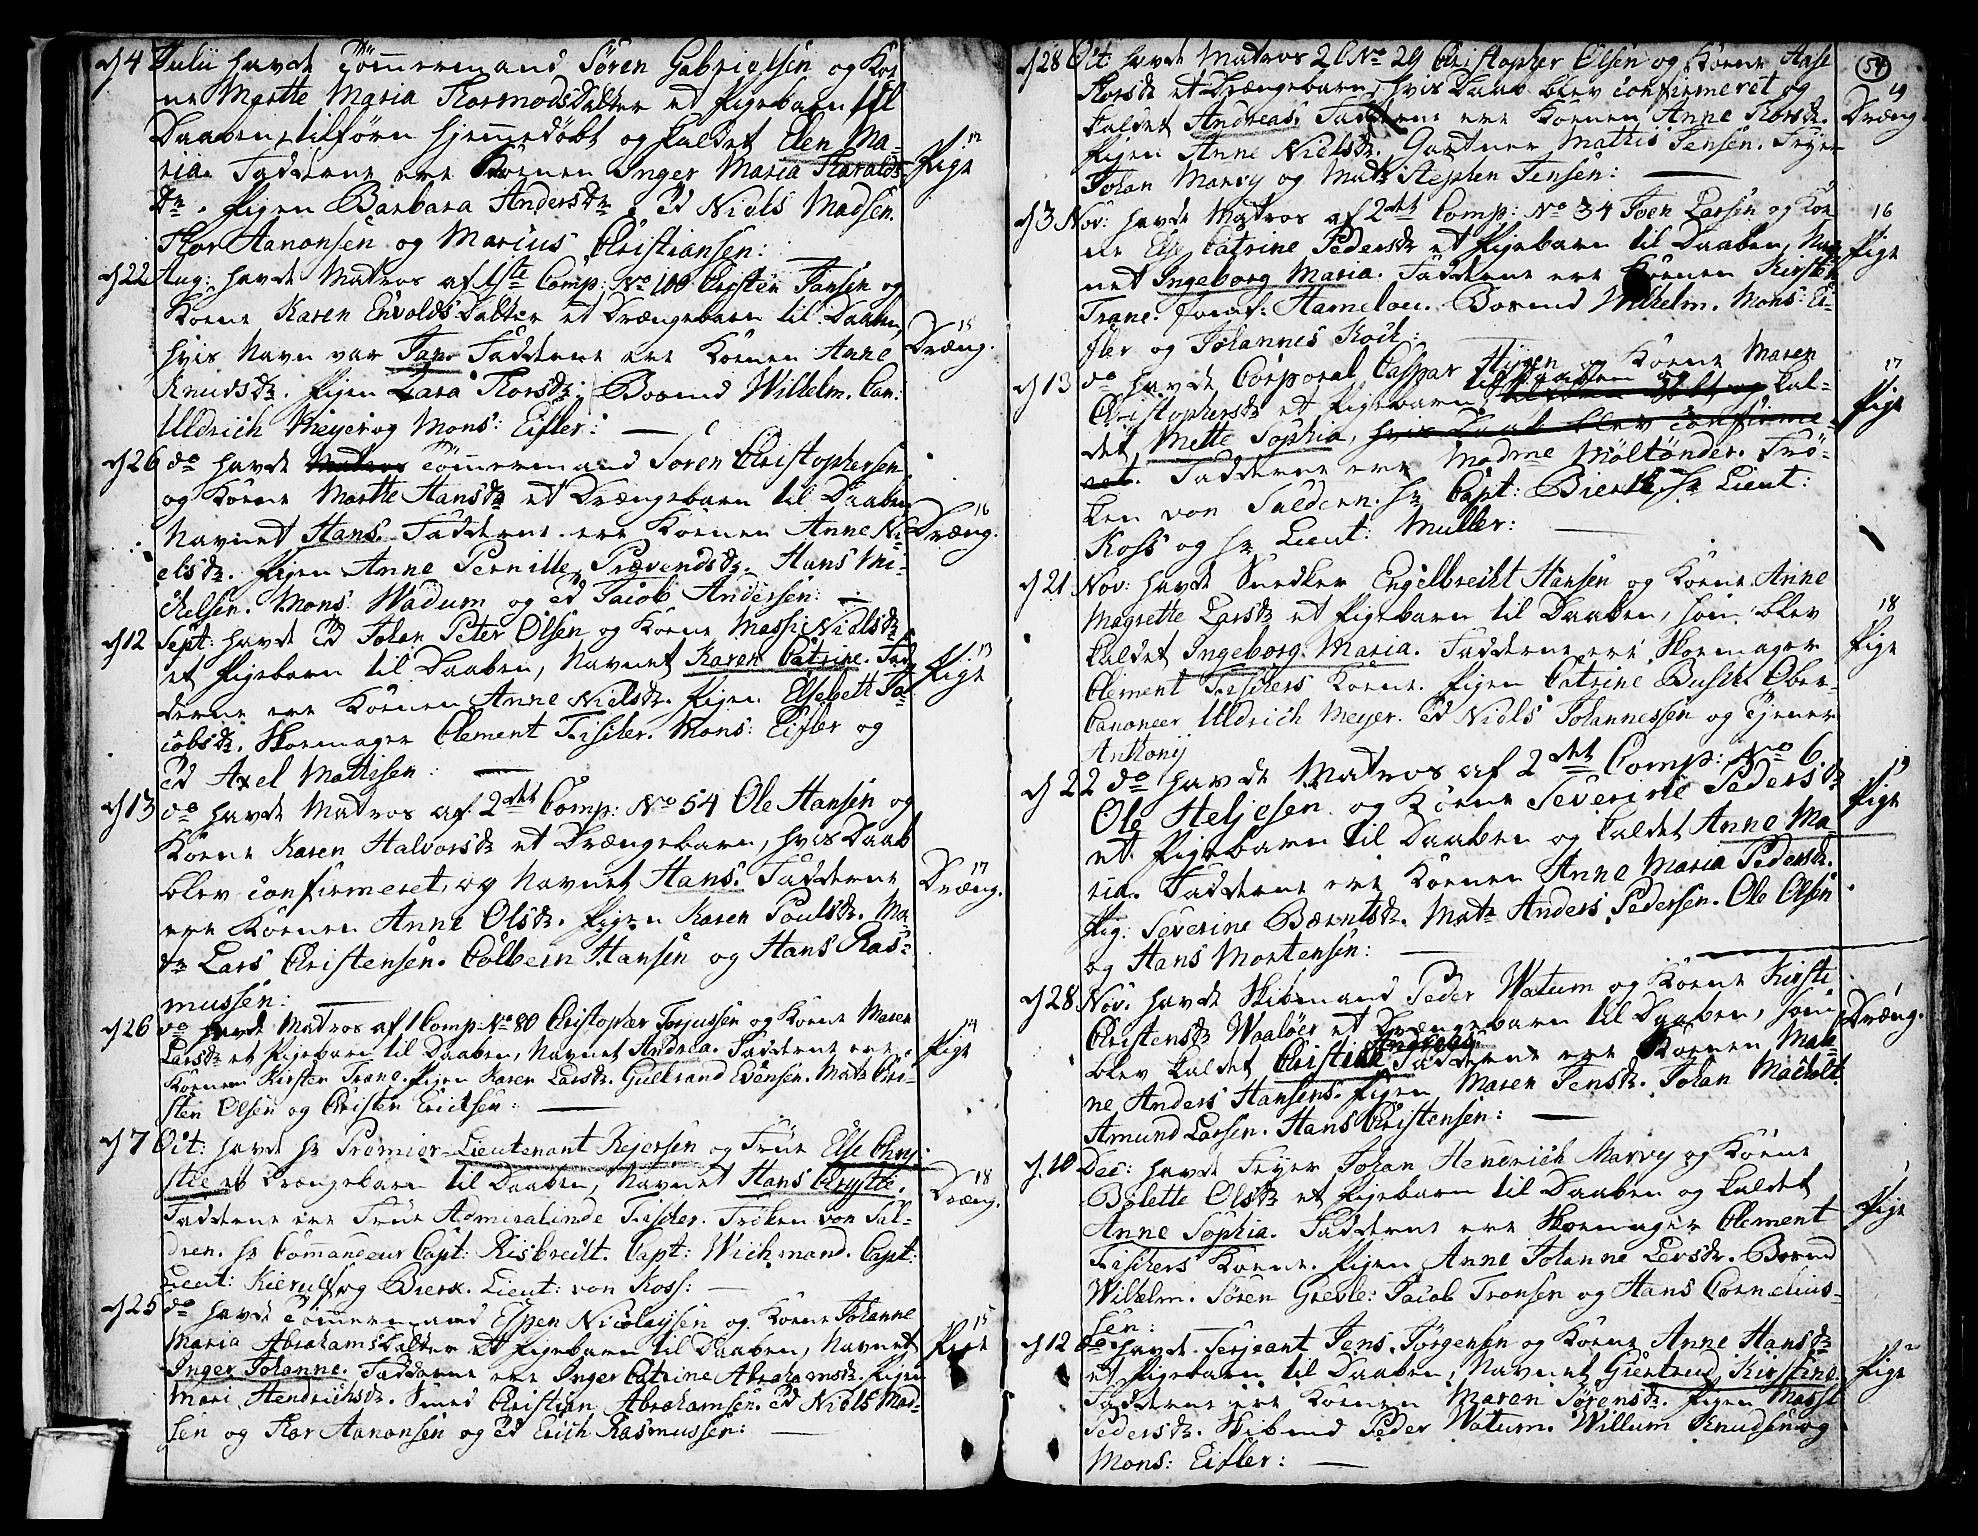 d 4 Julii havde Tömmermand Sören Gabrielsen og Ko-
ne Marthe Maria Thormodsdatter et Pigebarn til
Daaben, tilforn hjemmedöbt og kaldet Elen Ma-
ria. Fadderne ere Konen Inger Maria Haralds-
dr. Pigen Barbara Andersdr. Ed Niels Madsen.
Thor Aanonsen og Marcus Christiansen:
12
Pige
d 22 Aug: havde Matros af 1ste Comp: No 100 Christen Jansen og
Kone Karen Envolds Datter et Drængebarn til Daaben,
hvis Navn var Jan. Fadderne ere Konen Anne
Knudsdr. Pigen Lara Thorsdr. Bosmd Wilhelm. Can:
Uldrich Meyer og Mons: Eifler:
15
Dræng.
d 26 do havde Matros Tömmermand Sören Christophersen
og Kone Marthe Hansdr et Drængebarn til Daaben
Navnet Hans. Fadderne ere Konen Anne Ni-
elsdr. Pigen Anne Pernille Prævendsdr. Hans Mi-
chelsen. Mons: Wadum og Ed Jacob Andersen:
16
Dræng.
d 12 Sept: havde Ed Johan Peter Olsen og Kone Massi Nielsdr
et Pigebarn til Daaben, Navnet Karen Catrine. Fad-
derne ere Konen Anne Nielsdr. Pigen Elsebeth Ja-
cobsdr. Skomager Clement Fischer. Mons: Eifler og
Ed Axel Mathisen:
13
Pige
d 13 do havde Matros af 2det Comp: No 54 Ole Hansen og
Kone Karen Halvorsdr et Drængebarn, hvis Daab
blev confirmeret, og Navnet Hans. Fadderne
ere Konen Anne Olsdr. Pigen Karen Poulsdr. Ma-
tr Lars Christensen. Colbern Hansen og Hans Ras-
mussen:
17
Dræng.
d 26 do havde Matros af 1 Comp: No 80 Christopher Terjussen og Kone Maren
Larsdr et Pigebarn til Daaben, Navnet Andrea. Fadderne ere
Konen Kirsten Trane. Pigen Karen Larsdr. Gulbrand Evensen. Matr Chri-
sten Olsen og Christen Erichsen:
14
Pige
d 7 Oct: havde Hr Premier-Lieutenant Rejersen og Frue Else Chry-
stie et Drængebarn til Daaben, Navnet Hans Chrystie.
Fadderne ere Frue Admiralinde Fischer. Fröken von Sal-
dren. Hr Commandeur Capt: Risbrecht. Capt: Wichmand. Capt:
Lieut: Kierulf og Bierk. Lieut: von Koss:
18
Dræng.
d 25 do havde Tömmermand Espen Nicolaysen og Kone Johanne
Maria Abrahams Datter et Pigebarn til Daaben, Navnet
Inger Johanne. Fadderne ere Inger Catrine Abrahamsdr. Pigen
Mari Hendrichsdr. Smed Christian Abrahamsen. Ed Niels Mad-
sen og Thor Aanonsen og Ed Erich Rasmussen:
15
Pige
54
d 28 Oct: havde Matros 2 C No 29 Christopher Olsen og Konen Aase
Thorsdr et Drængebarn, hvis Daab blev confirmeret og
kaldet Andreas. Fadderne ere Konen Anne Thorsdr.
Pigen Anne Nielsdr. Gartner Mattis Jensen. Fryer
Johan Marvy og Matr Stephen Jensen:
19
Dræng.
d 3 Nov: havde Matros af 2det Comp: No 34 Joen Larsen og Ko-
ne Else Catrine Pedersdr et Pigebarn til Daaben, Nav-
net Ingeborg Maria. Fadderne ere Konen Kirsten
Trane. Hameloe. Bosmd Wilhelm. Mons: Ei-
fler og Johannes Koch:
16
Pige
d 13 do havde Corporal Caspar og Kone Maren
Christophersdr et Pigebarn til Daaben og kal-
det, Mette Sophia, hvis Daab blev confirme-
ret. Fadderne ere Madme Möltönder. Frö-
ken von Saldern. Hr Capt: Bierk. Hr Lieut:
Koss og Hr Lieut: Muller:
17
Pige
d 21 Nov: havde Snedker Engelbrecht Hansen og Kone Anne
Magrette Larsdr et Pigebarn til Daaben, som blev
kaldet Ingeborg Maria. Fadderne ere Skomager
Clement Fischers Kone. Pigen Catrine Busch. Ober-
Canoneer Uldrich Meyer. Ed Niels Johannessen og Tjener
Anthonij
18
Pige
d 22 do havde Matros af 2det Comp: No 6
Ole Heljesen og Kone Severine Pedersdr
et Pigebarn til Daaben og kaldet Anne Ma-
ria. Fadderne ere Konen Anne Maria Pedersdr.
Pig: Severine Bærntsdr. Matr Anders Pedersen. Ole Olsen
og Hans Mortensen:
19
Pige
d 28 Nov: havde Skibmand Peder Watum og Kone Kirsti
Christensdr Waalöer et Drængebarn til Daaben, som
blev kaldet Christian Andreas. Fadderne ere Konen Mad-
ne Anders Hansens. Pigen Maren Jensdr. Johan Macholt.
Amund Larsen. Hans Christensen:
1
Dræng.
d 10 Dec: havde Fryer Johan Hendrich Marvy og Kone
Bolette Olsdr et Pigebarn til Daaben og kaldet
Anne Sophia. Fadderne ere Skomager Clement
Fischers Kone. Pigen Anne Johanne Larsdr. Bosmd
Wilhelm. Sören Gresle: Jacob Tronsen og Hans Cornelius-
sen:
1
Pige
d 12 do havde Serjeant Jens Jörgensen og Kone Anne Hansdr
et Pigebarn til Daaben, Navnet Giertrud Kirstine.
Fadderne ere Konen Maren Sörensdr. Pigen Massi
Pedersdr. Skibmd Peder Watum. Willum Knudsen og
Mons: Eifler:
2
Pige